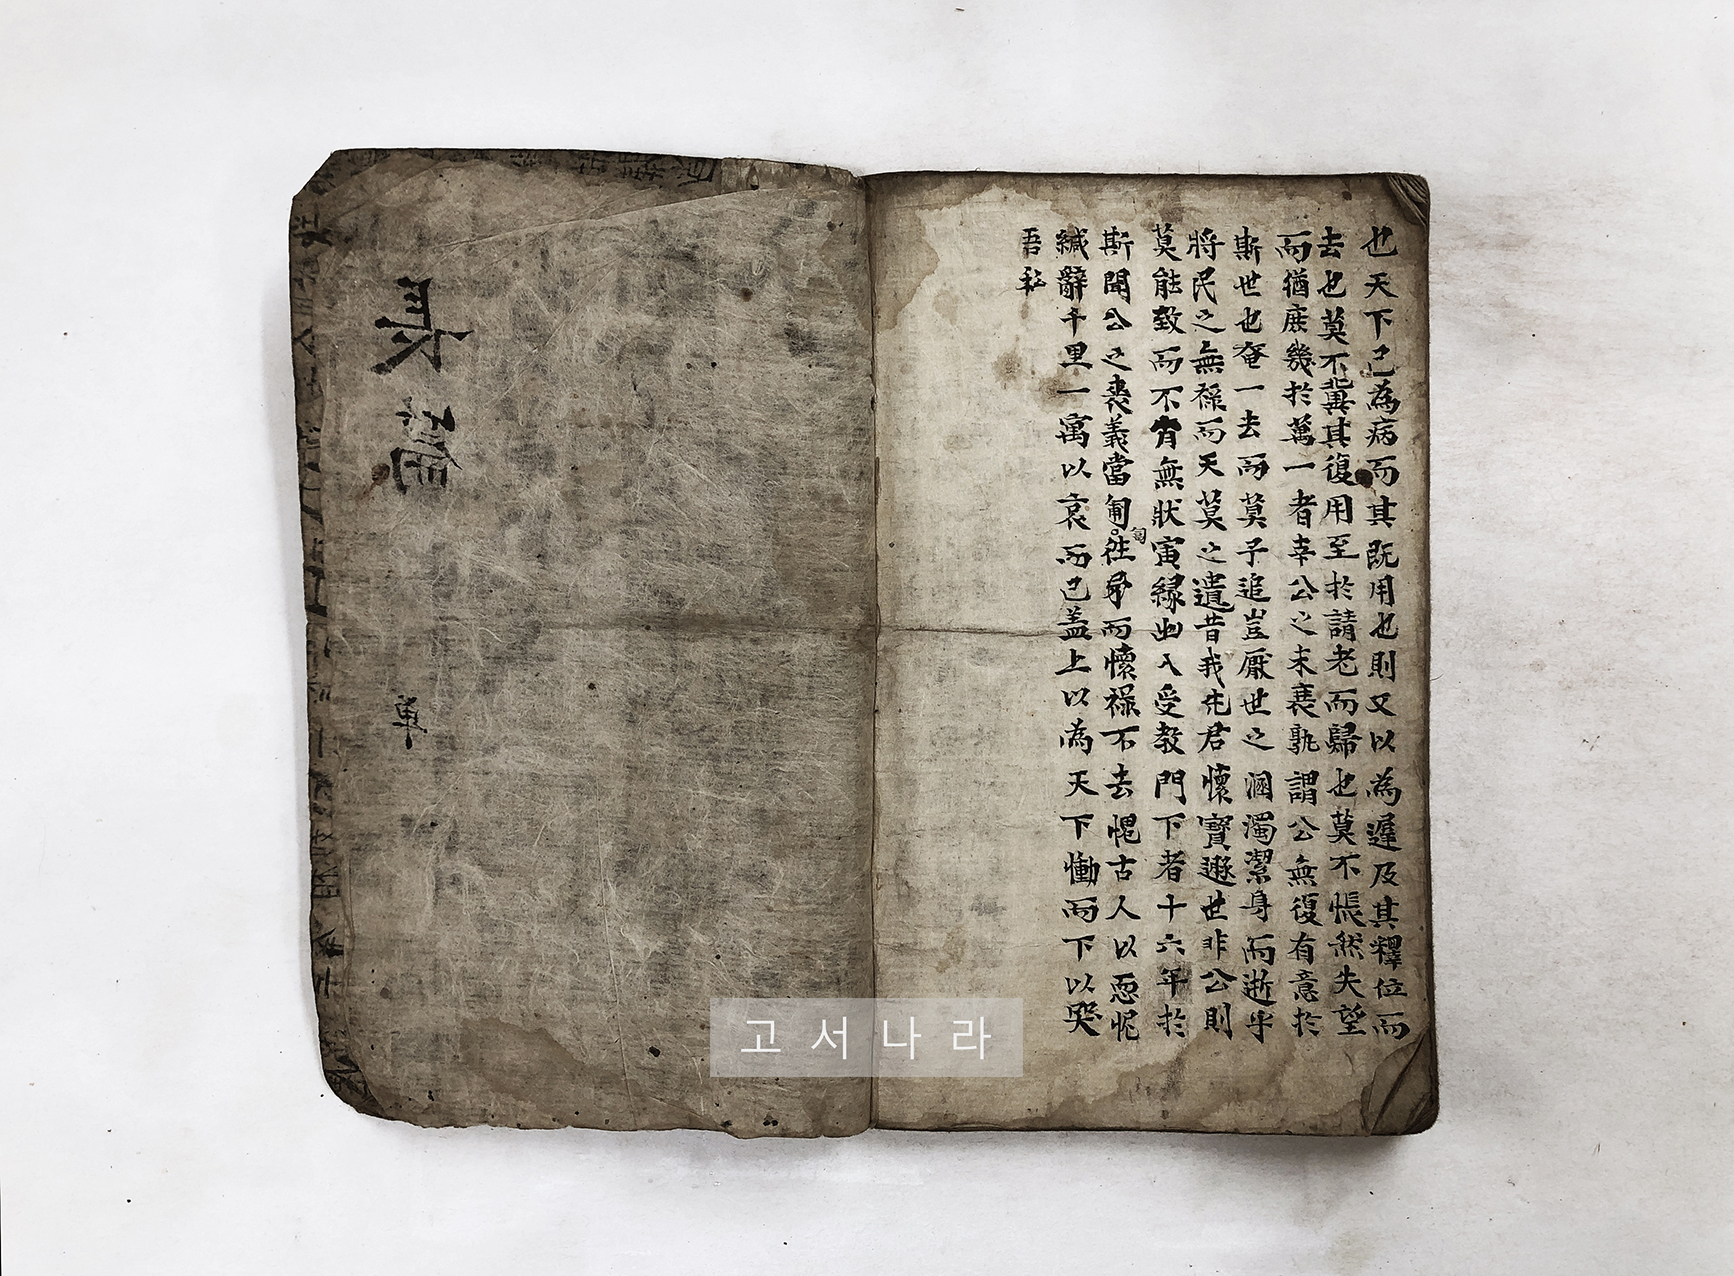 也天下已為病而其既用也則又以為遲及其釋位而
去也莫不冀其復用至於請老而歸也莫不悵然失望
而猶庶幾於萬一者幸公之未衰孰謂公無復有意於
斯世也奄一去而莫予追豈厭世之溷濁潔身而逝乎
將民之無祿而天莫之遺昔我先君懷寶遯世非公則
莫能致而不肖無狀寅緣出入受教門下者十六年於
斯聞公之喪義當匍往吊而懷祿不去愧古人以忸怩
匐
緘辭千里一寓以哀而已蓋上以為天下慟而下以哭
吾私
長篇
單
고서나라